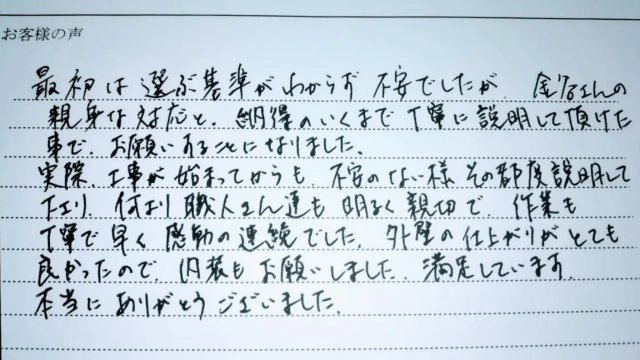 お客様の声
最初は選ぶ基準がわからず不安でしたが、さんの
親身な対応と、納得のいくまで丁寧に説明して頂けた
事で、お願いすることになりました。
実際、工事が始まってからも、不安のない様その都度説明して
下さり、何より職人さん達も明るく親切で、作業も
丁寧で早く感動の連続でした。外壁の仕上がりがとても
良かったので、内装もお願いしました。満足しています。
本当にありがとうございました。